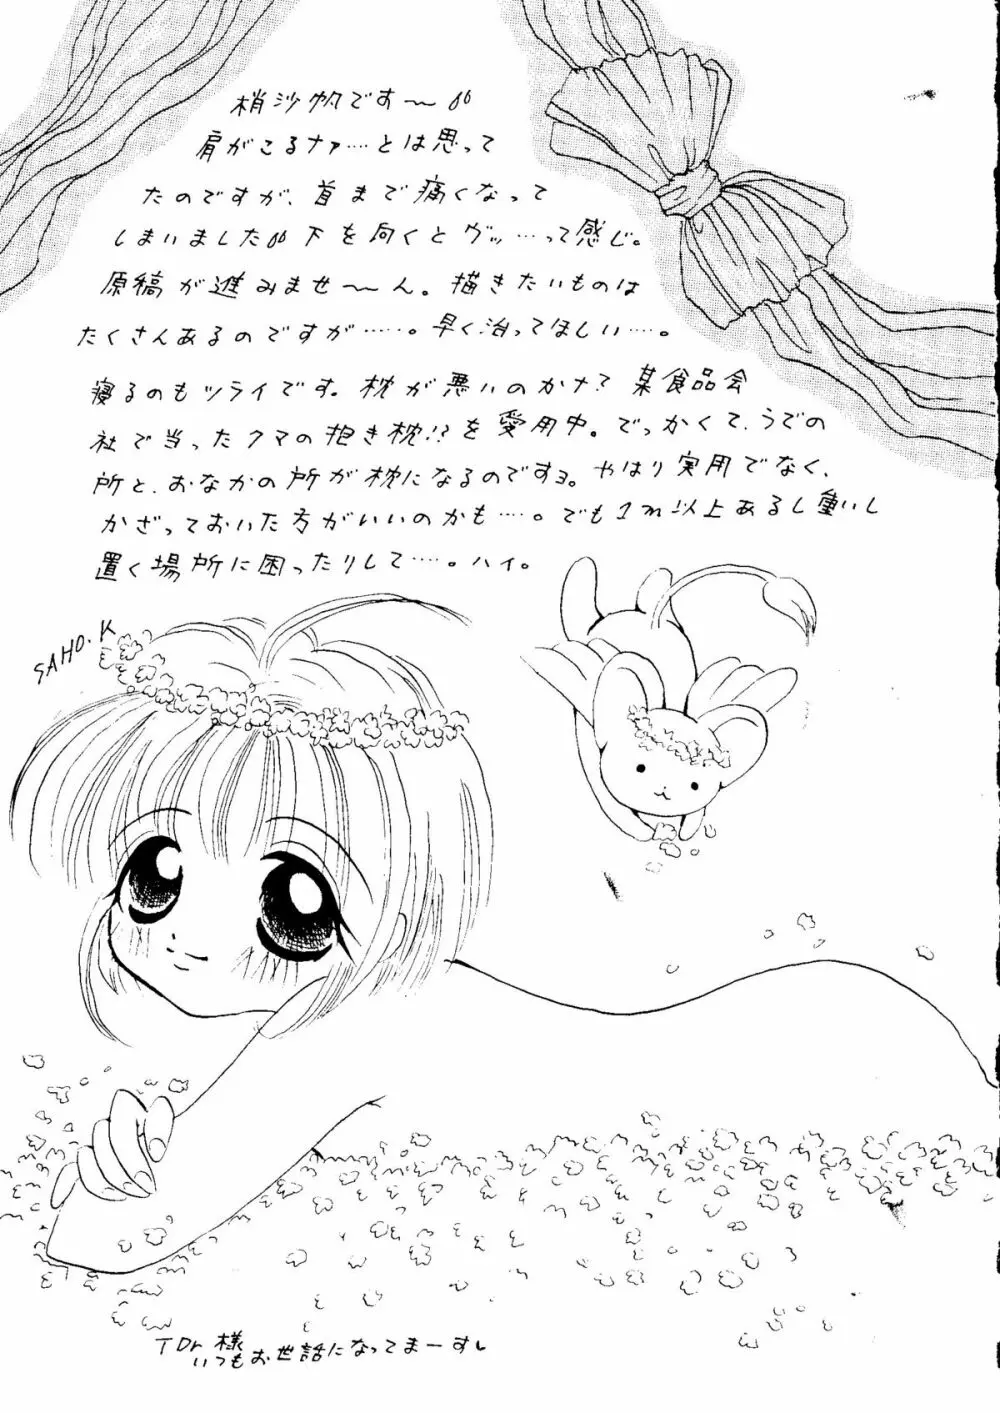 梢沙帆です〜〃
肩がこるナァ…とは思って
たのですが、首まで痛くなって
しまいました〃下を向くとヴッ…って感じ。
原稿が進みませ〜ん。描きたいものは
たくさんあるのですが……。早く治ってほしい…。
寝るのもツライです。枕が悪いのかナ?某食品会
社で当ったクマの抱き枕!?を愛用中。でっかくて、うでの
所と、おなかの所が枕になるのですョ。やはり実用でなく、
かざっておいた方がいいのかも…。でも1m以上あるし重いし
置く場所に困ったりして…。ハイ。
SAHO.K
TDr様
いつもお世話になってまーすし